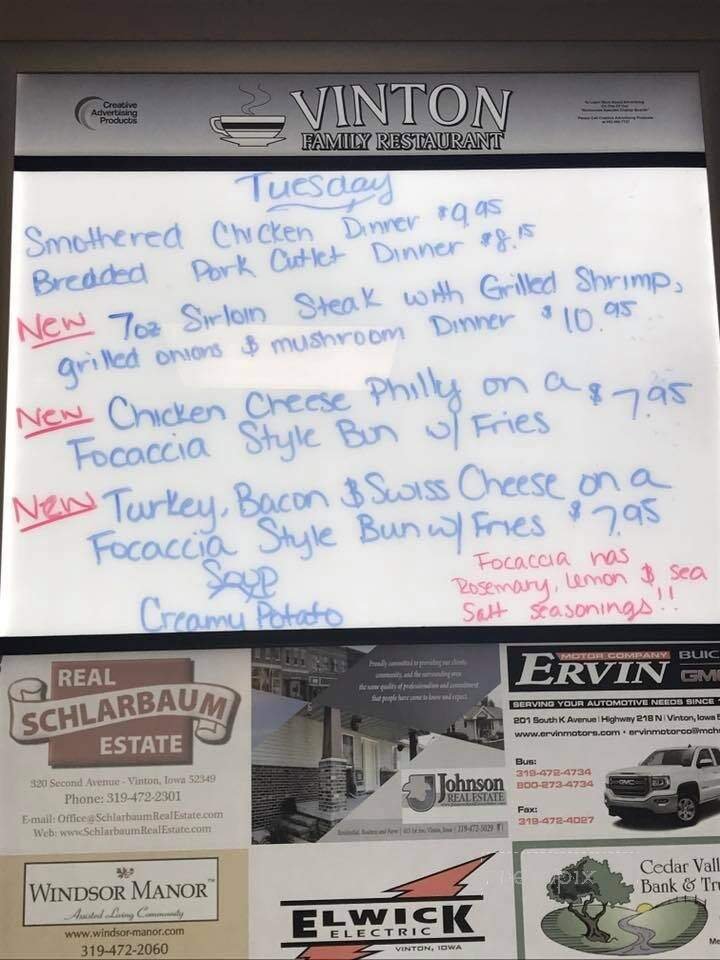 Creative
Advertising
Products
VINTON
FAMILY RESTAURANT
Tuesday
Smothered Chicken Dinner $9.95
Bredded Pork Cutlet Dinner $8.15
New 7oz Sirloin Steak with Grilled Shrimp,
grilled onions & mushroom Dinner $10.95
New Chicken Cheese Philly on a $7.95
Focaccia Style Bun w/ Fries
New Turkey, Bacon & Swiss Cheese on a
Focaccia Style Bun w/ Fries $7.95
Soup
Creamy Potato
Focaccia has
Rosemary, Lemon & Sea
Salt seasonings!!
REAL
SCHLARBAUM
ESTATE
320 Second Avenue - Vinton, Iowa 52349
Phone: 319-472-2301
E-mail: Office@SchlarbaumRealEstate.com
Web: www.SchlarbaumRealEstate.com
Proudly committed to providing our clients,
community, and the surrounding area
the same quality of professionalism and commitment
that people have come to know and expect.
Johnson
REAL ESTATE
319-472-5029
MOTOR COMPANY BUIC
ERVIN GM
SERVING YOUR AUTOMOTIVE NEEDS SINCE
201 South K Avenue | Highway 218 N | Vinton, Iowa
www.ervinmotors.com • ervinmotorco@mch
Bus:
319-472-4734
800-273-4734
Fax:
319-472-4027
GMC
WINDSOR MANOR™
Assisted Living Community
www.windsor-manor.com
319-472-2060
ELWICK
ELECTRIC
VINTON, IOWA
Cedar Vall
Bank & Tru
Me